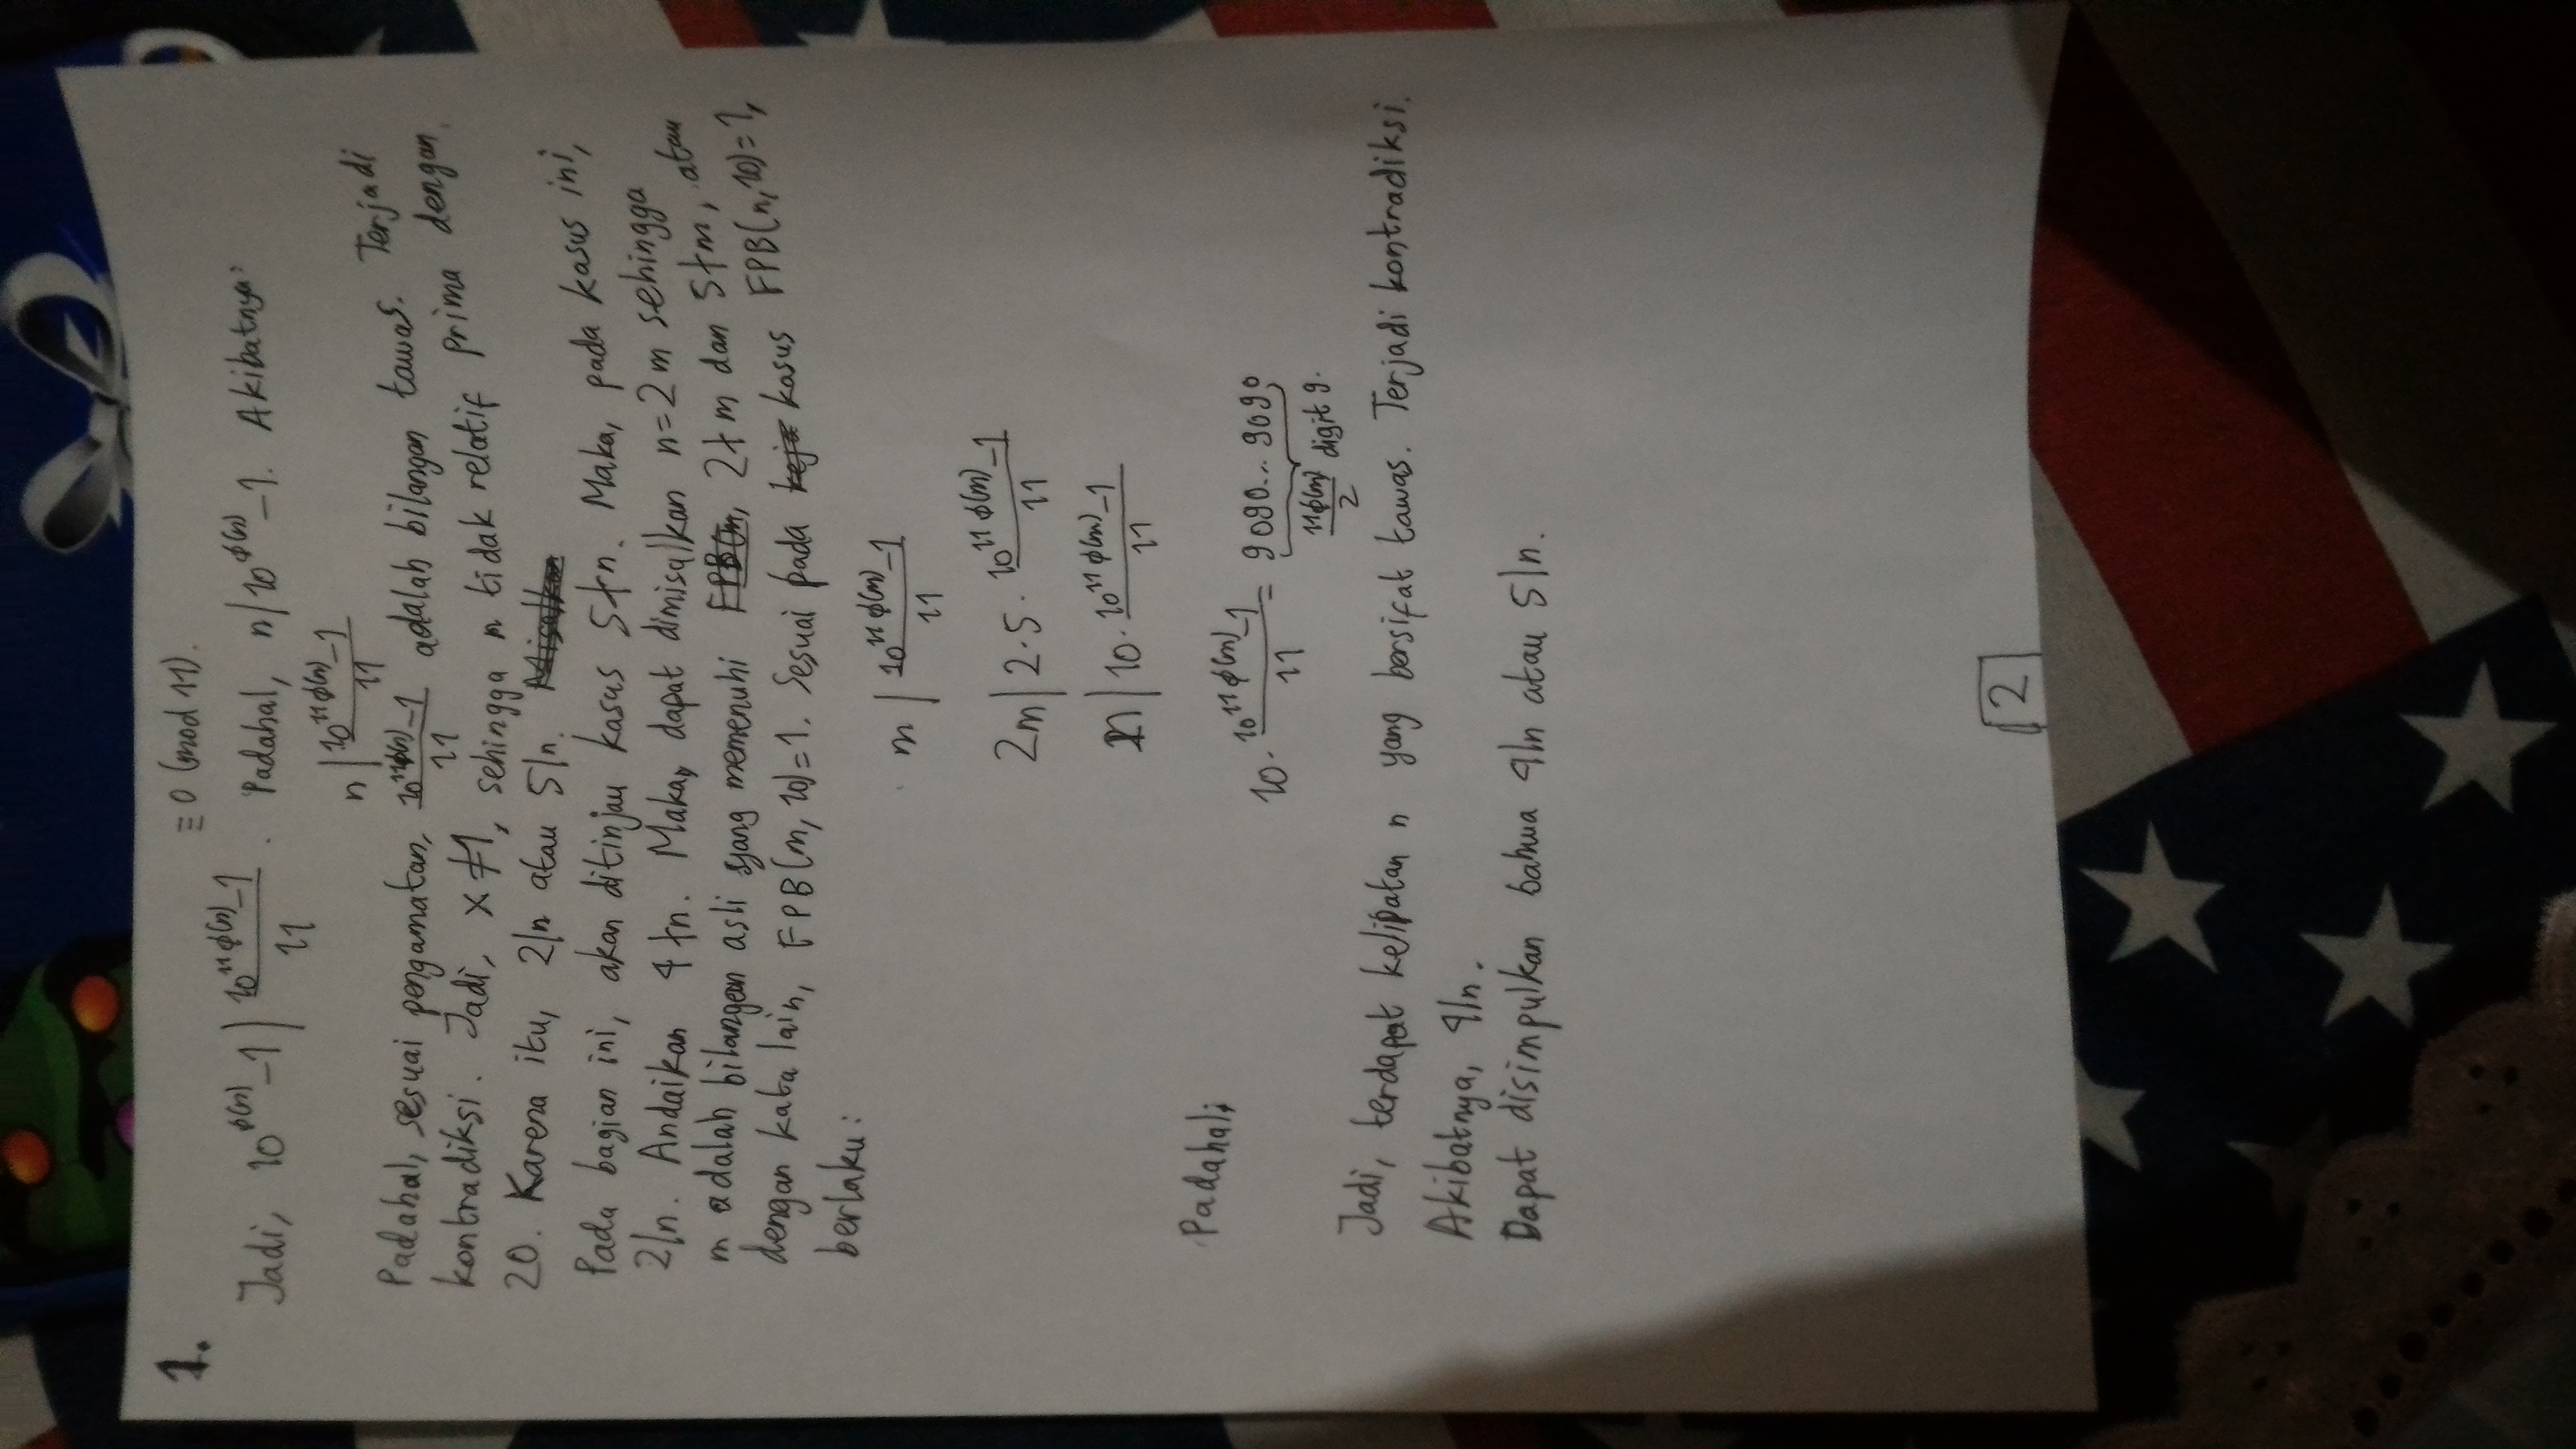 1.
≡ 0 (mod 11).
Jadi, 10^{φ(n)}-1 | \frac{10^{11φ(n)}-1}{11}. Padahal, n | 10^{φ(n)}-1. Akibatnya:
n | \frac{10^{11φ(n)}-1}{11}
Padahal, sesuai pengamatan, \frac{10^{11φ(n)}-1}{11} adalah bilangan tawas. Terjadi
kontradiksi. Jadi, x ≠ 1, sehingga n tidak relatif prima dengan
20. Karena itu, 2|n atau 5|n. Misalkan
Pada bagian ini, akan ditinjau kasus 5∤n. Maka, pada kasus ini,
2|n. Andaikan 4∤n. Maka, dapat dimisalkan n=2m sehingga
m adalah bilangan asli yang memenuhi FPB(m, 2∤m dan 5∤m, atau
dengan kata lain, FPB(m, 10)=1. Sesuai pada keja kasus FPB(n,10)=1,
berlaku:
m | \frac{10^{11φ(m)}-1}{11}
2m | 2·5·\frac{10^{11φ(m)}-1}{11}
n | 10·\frac{10^{11φ(m)}-1}{11}
Padahal,
10·\frac{10^{11φ(m)}-1}{11} = 9090...9090
\frac{11φ(m)}{2} digit 9.
Jadi, terdapat kelipatan n yang bersifat tawas. Terjadi kontradiksi.
Akibatnya, 4|n.
Dapat disimpulkan bahwa 4|n atau 5|n.
2